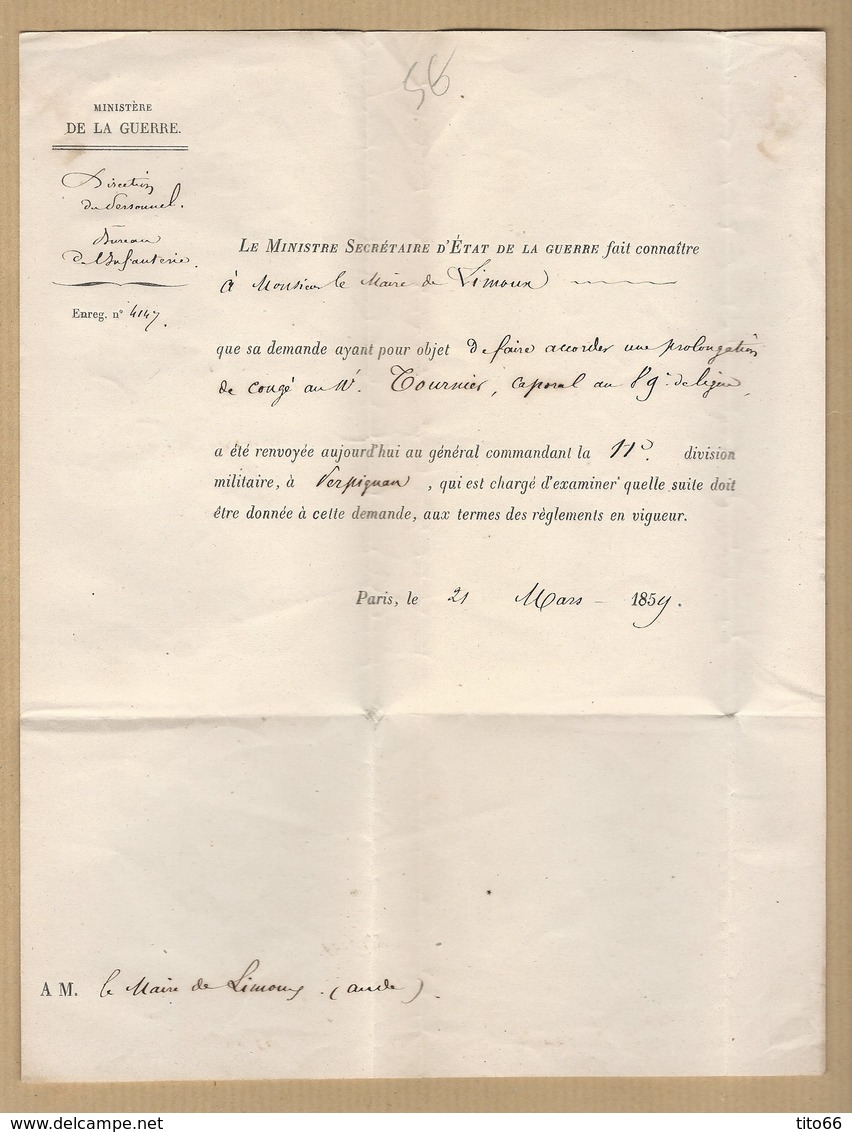 58
MINISTÈRE
DE LA GUERRE.
Direction
du Personnel.
Bureau
de l'Infanterie.
Enreg. n° 4147.
LE MINISTRE SECRÉTAIRE D'ÉTAT DE LA GUERRE fait connaître
à Monsieur le Maire de Limoux
que sa demande ayant pour objet de faire accorder une prolongation
de congé au Né. Tournier, caporal au 89e de ligne,
a été renvoyée aujourd'hui au général commandant la 11e. division
militaire, à Perpignan, qui est chargé d'examiner quelle suite doit
être donnée à cette demande, aux termes des règlements en vigueur.
Paris, le 21 Mars 1859.
A M. le Maire de Limoux. (aude).
delcampe.net
tito66